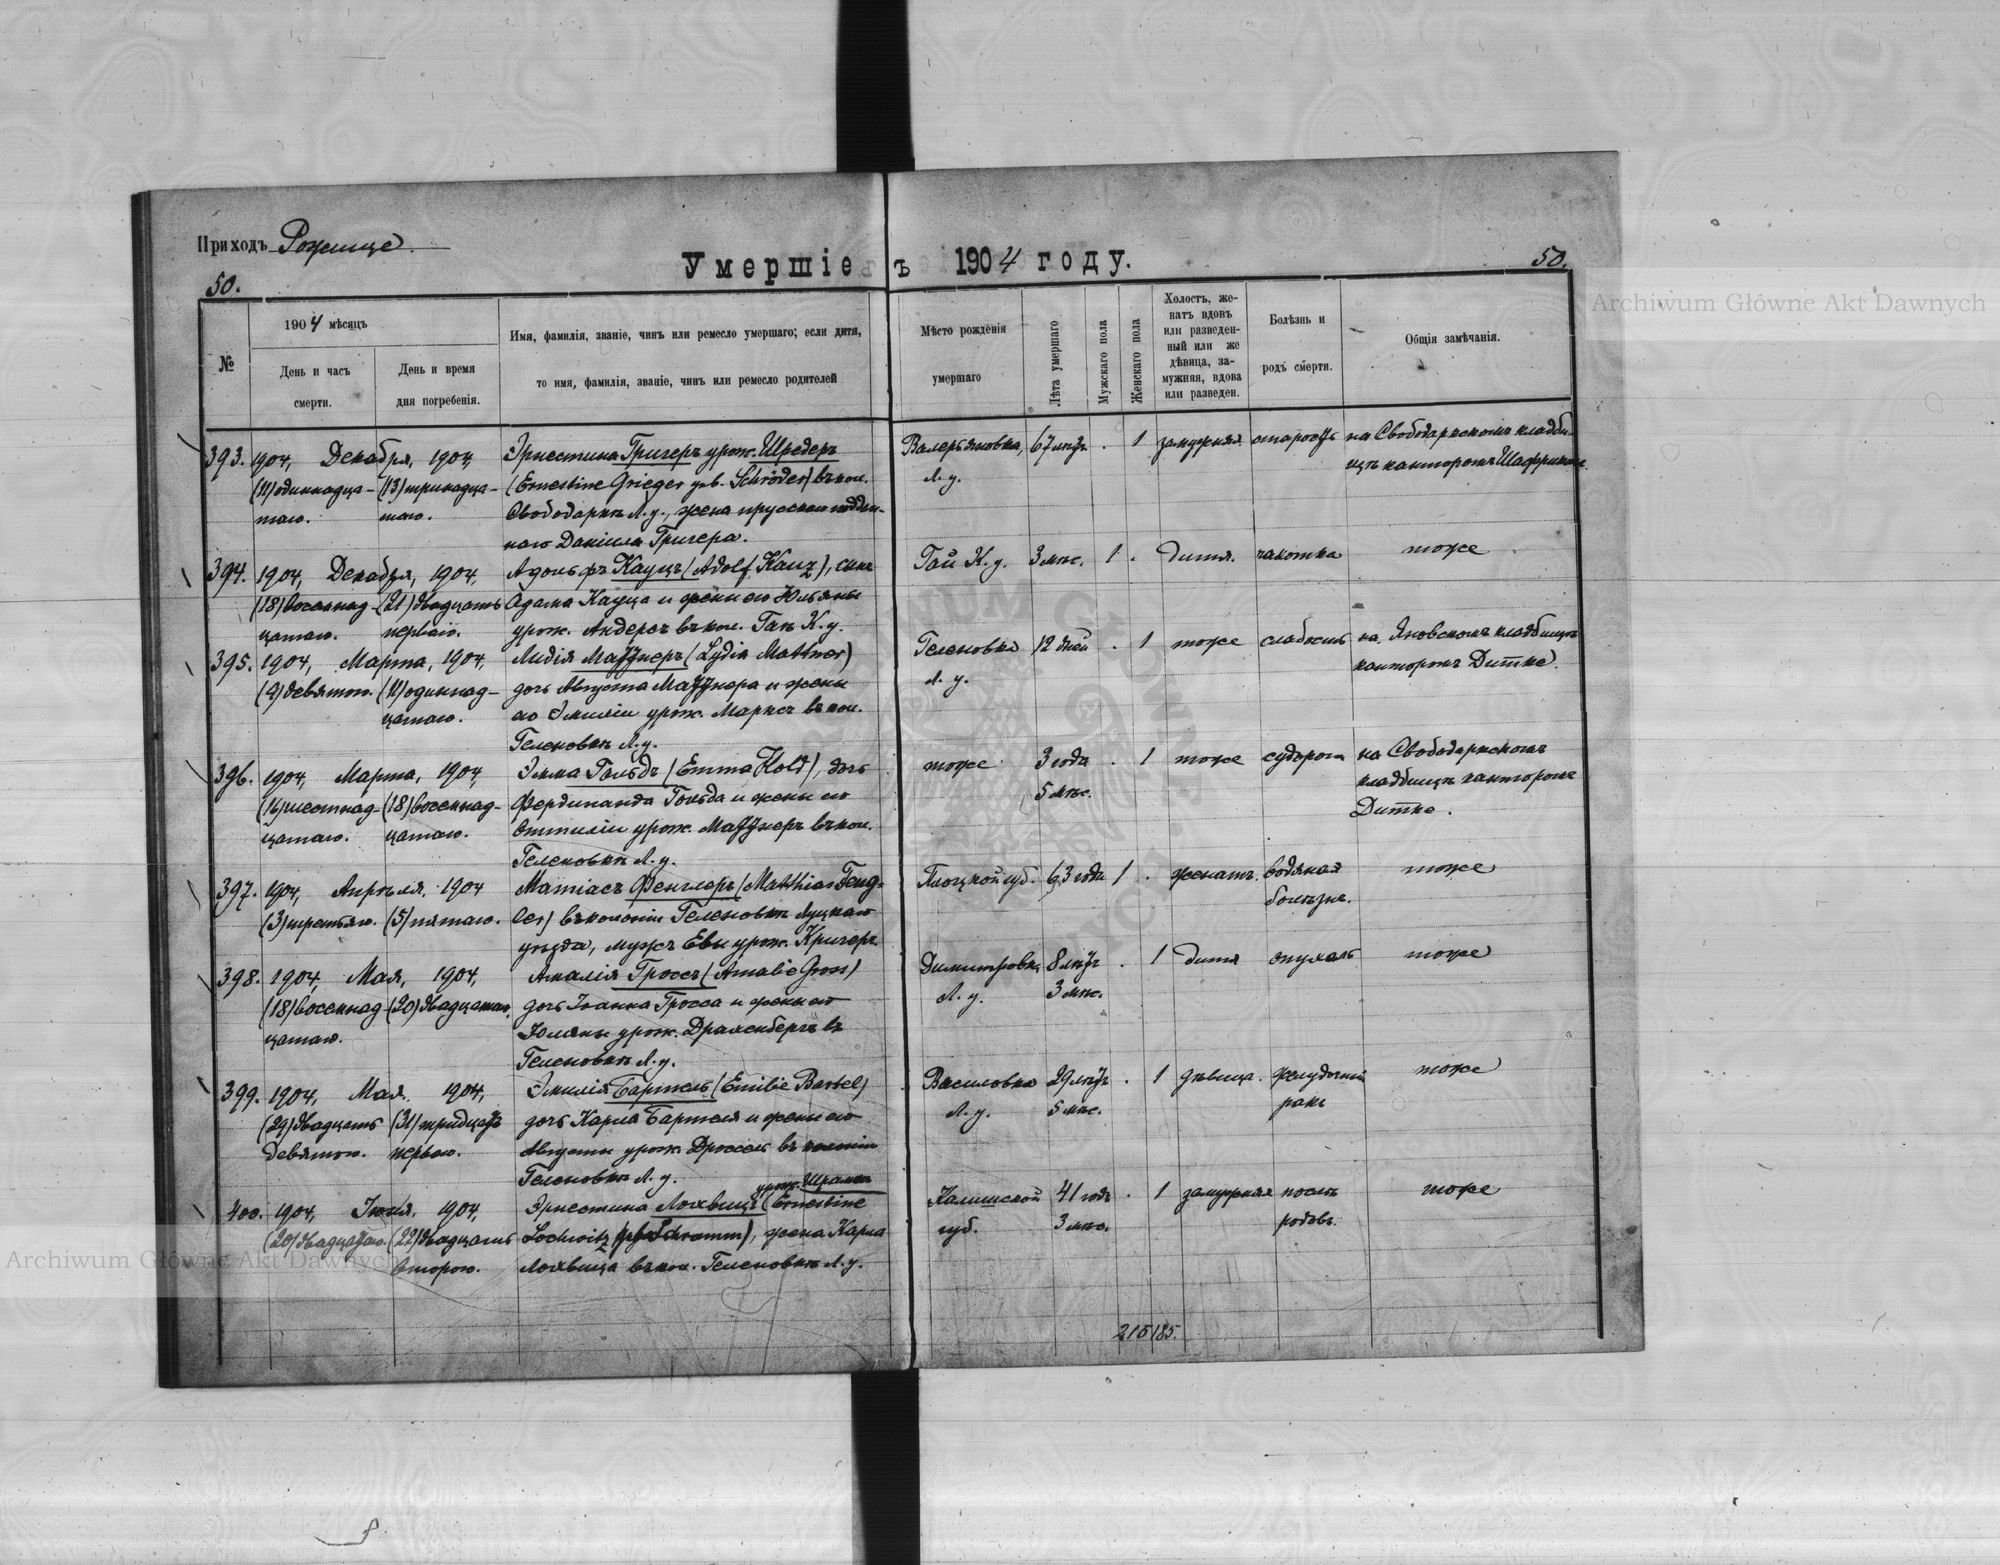 Приходъ Рожище.
Умершіе въ 1904 году.
50.
50.
№
1904 мѣсяцъ
День и часъ смерти.
День и время дня погребенія.
Имя, фамилія, званіе, чинъ или ремесло умершаго; если дитя,
то имя, фамилія, званіе, чинъ или ремесло родителей
Мѣсто рожденія
умершаго
Лѣта умершаго
Мужскаго пола
Женскаго пола
Холостъ, же-
натъ вдовъ
или разведен-
ный или же
дѣвица, за-
мужняя, вдова
или разведен.
Болѣзнь и
родъ смерти.
Общія замѣчанія.
393. 1904, Декабря, 1904, Эрнестина Григеръ урож. Шредеръ Валерьяновка, 67 лѣтъ . 1 замужняя старость на Свободарскомъ кладби-
(11) одиннадца- (13) тринадца- (Ernestine Grieger geb. Schröder) въ кол. Л. у. щѣ канторомъ
таго. таго. Свободаркѣ Л. у., жена прусскаго поддан-
наго Даніила Григера.
394. 1904, Декабря, 1904, Адольфъ Кауцъ (Adolf Kauz), сынъ Гай К. у. 3 мѣс. 1 . дитя. чахотка тоже
(18) восемнад- (21) двадцать Адама Кауца и жены его Юльяны
цатаго. перваго. урож. Андерсъ въ кол. Гаѣ К. у.
395. 1904, Марта, 1904, Лидія Маттнеръ (Lydia Mattner) Геленовка 12 дней . 1 тоже слабость на Яновскомъ кладбищѣ
(9) девятаго. (11) одиннад- дочь Августа Маттнера и жены Л. у. канторомъ Дитке.
цатаго. его Эмиліи урож. Марксъ въ кол.
Геленовкѣ Л. у.
396. 1904, Марта, 1904, Эмма Гольдъ (Emma Hold), дочь тоже 3 года . 1 тоже судорога на Свободарскомъ
(16) шестнад- (18) восемнад- Фердинанда Гольда и жены его 5 мѣс. кладбищѣ канторомъ
цатаго. цатаго. Оттиліи урож. Маттнеръ въ кол. Дитке.
Геленовкѣ Л. у.
397. 1904, Апрѣля, 1904 Матіасъ Фенглеръ (Mathias Feng- Плоцкой губ. 63 года 1 . женатъ. водяная тоже
(3) третьяго. (5) пятаго. ler) въ колоніи Геленовкѣ Луцкаго болѣзнь.
уѣзда, мужъ Евы урож. Кригеръ.
398. 1904, Мая, 1904, Амалія Гроссъ (Amalie Gross) Димитровка 8 лѣтъ . 1 дитя опухоль тоже
(18) восемнад- (20) двадцатаго. дочь Іоанна Гросса и жены его Л. у. 3 мѣс.
цатаго. Юльяны урож. въ
Геленовкѣ Л. у.
399. 1904, Мая, 1904, Эмилія Бартель (Emilie Bartel) Василовка 29 лѣтъ . 1 дѣвица. желудочный тоже
(29) двадцать (31) тридцать дочь Карла Бартеля и жены его Л. у. 5 мѣс. ракъ
девятаго. перваго. Августы урож. Дроссель въ колоніи
Геленовкѣ Л. у.
урож. Шраммъ
400. 1904, Іюня, 1904, Эрнестина Лохвицъ (Ernestine Калишской 41 годъ . 1 замужняя послѣ тоже
(20) двадцатаго. (22) двадцать Lochwitz geb. Schramm), жена Карла губ. 3 мѣс. родовъ.
второго. Лохвица въ кол. Геленовкѣ Л. у.
215 185.
Archiwum Główne Akt Dawnych
Archiwum Główne Akt Dawnych